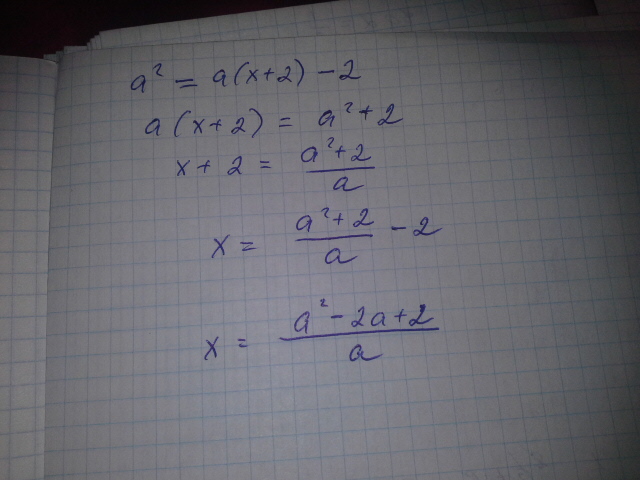 a² = a(x+2) - 2
a(x+2) = a²+2
x+2 = (a²+2)/a
x = (a²+2)/a - 2
x = (a²-2a+2)/a